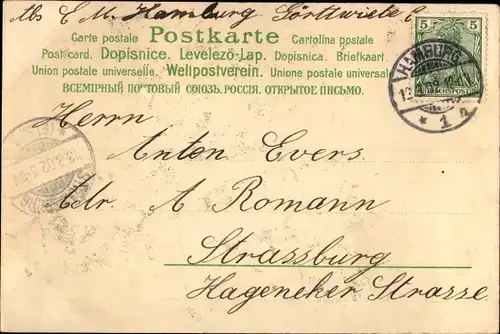 Abs E. M. Hamburg Görttwiete
Postkarte
Carte postale Cartolina postale
Post card. Dopisnice. Levelező-Lap. Dopisnica. Briefkaart.
Union postale universelle. Weltpostverein. Unione postale universale
ВСЕМІРНЫЙ ПОЧТОВЫЙ СОЮЗЪ. РОССІЯ. ОТКРЫТОЕ ПИСЬМО.
5 5
REICHSPOST
HAMBURG
* 1 n
Herrn
Anton Evers.
Adr. A Romann
Strassburg
Hageneker Strasse.